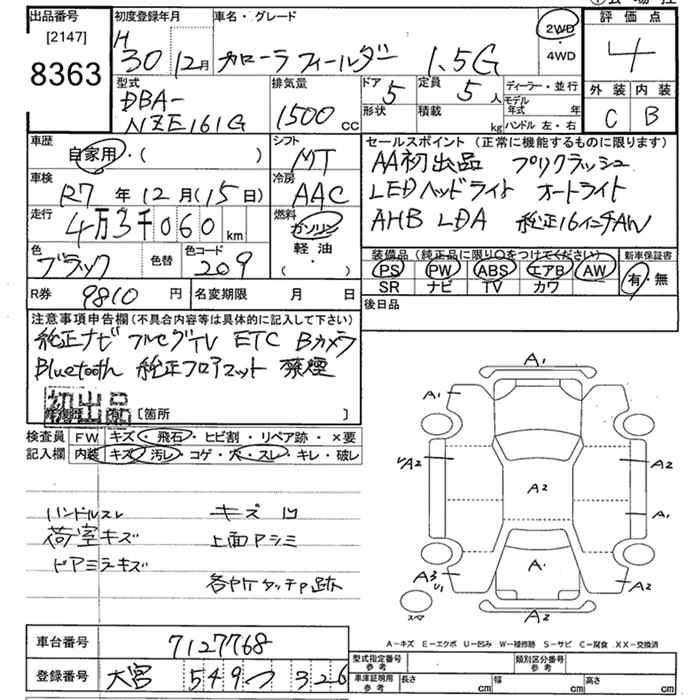 出品番号 [2147] 8363
初度登録年月 H 30年 12月
車名・グレード カローラ フィールダー 1.5G
2WD・4WD
評価点 4
外装 C 内装 B
型式 DBA-NZE161G
排気量 1500 cc
ドア 5 形状
定員 5人 積載 kg
ディーラー・並行
モデル年式 年
ハンドル 左・右
車歴 自家用・( )
シフト MT
車検 R7年 12月(15日)
冷房 AAC
走行 4万3千060 km
燃料 ガソリン 軽油 ・( )
色 ブラック 色替 色コード 209
R券 9810円 名変期限 月 日
セールスポイント(正常に機能するものに限ります)
AA初出品 プリクラッシュ
LEDヘッドライト オートライト
AHB LDA 純正16インチAW
装備品(純正品に限り〇をつけてください) 新車保証書
PS PW ABS エアB AW 有・無
SR ナビ TV カワ
後日品
注意事項申告欄(不具合内容等は具体的に記入して下さい)
純正ナビ フルセグTV ETC Bカメラ
Bluetooth 純正フロアマット 禁煙
初出品
修復歴 [箇所 ]
検査員 FW キズ・飛石・ヒビ割・リペア跡・×要
記入欄 内装 キズ・汚レ・コゲ・穴・スレ・キレ・破レ
ハンドルスレ キズ凹
荷室キズ 上面アシミ
ドアミラーキズ
A1
A1
A2 A2
A2
A1
A3 U1 A1 A2
スペア A2
A=キズ E=エクボ U=凹み W=補修跡 S=サビ C=腐食 XX=交換済
車台番号 7127768
登録番号 大宮 549 つ 326
型式指定番号 参考 類別区分番号 参考
車庫証明用 参考 長さ cm 幅 cm 高さ cm